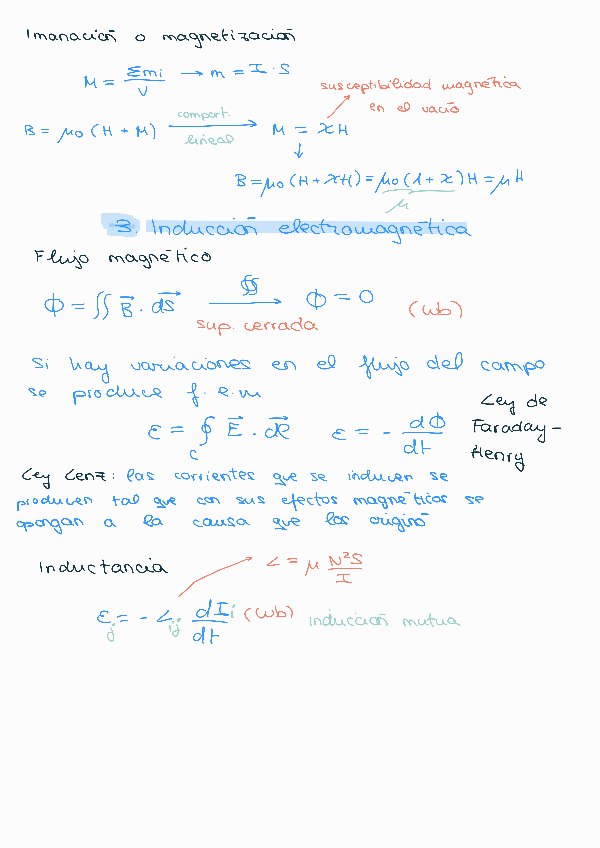 Imanación o magnetización
M = Σmi / V → m = I · S
susceptibilidad magnética
en el vacío
B = μ0 (H + M) compart. lineal → M = χH
↓
B = μ0 (H + χH) = μ0 (1 + χ) H = μ H
μ
3. Inducción electromagnética
Flujo magnético
Φ = ∬ B⃗ · dS⃗ ∯ sup. cerrada → Φ = 0 (wb)
Si hay variaciones en el flujo del campo
se produce f.e.m
Ley de
ε = ∮c E⃗ · dl⃗ ε = - dΦ/dt Faraday-
Henry
Ley Lenz: las corrientes que se inducen se
producen tal que con sus efectos magnéticos se
opongan a la causa que los originó
Inductancia L = μ N²S / I
εj = - Lij dIi/dt (wb) inducción mutua